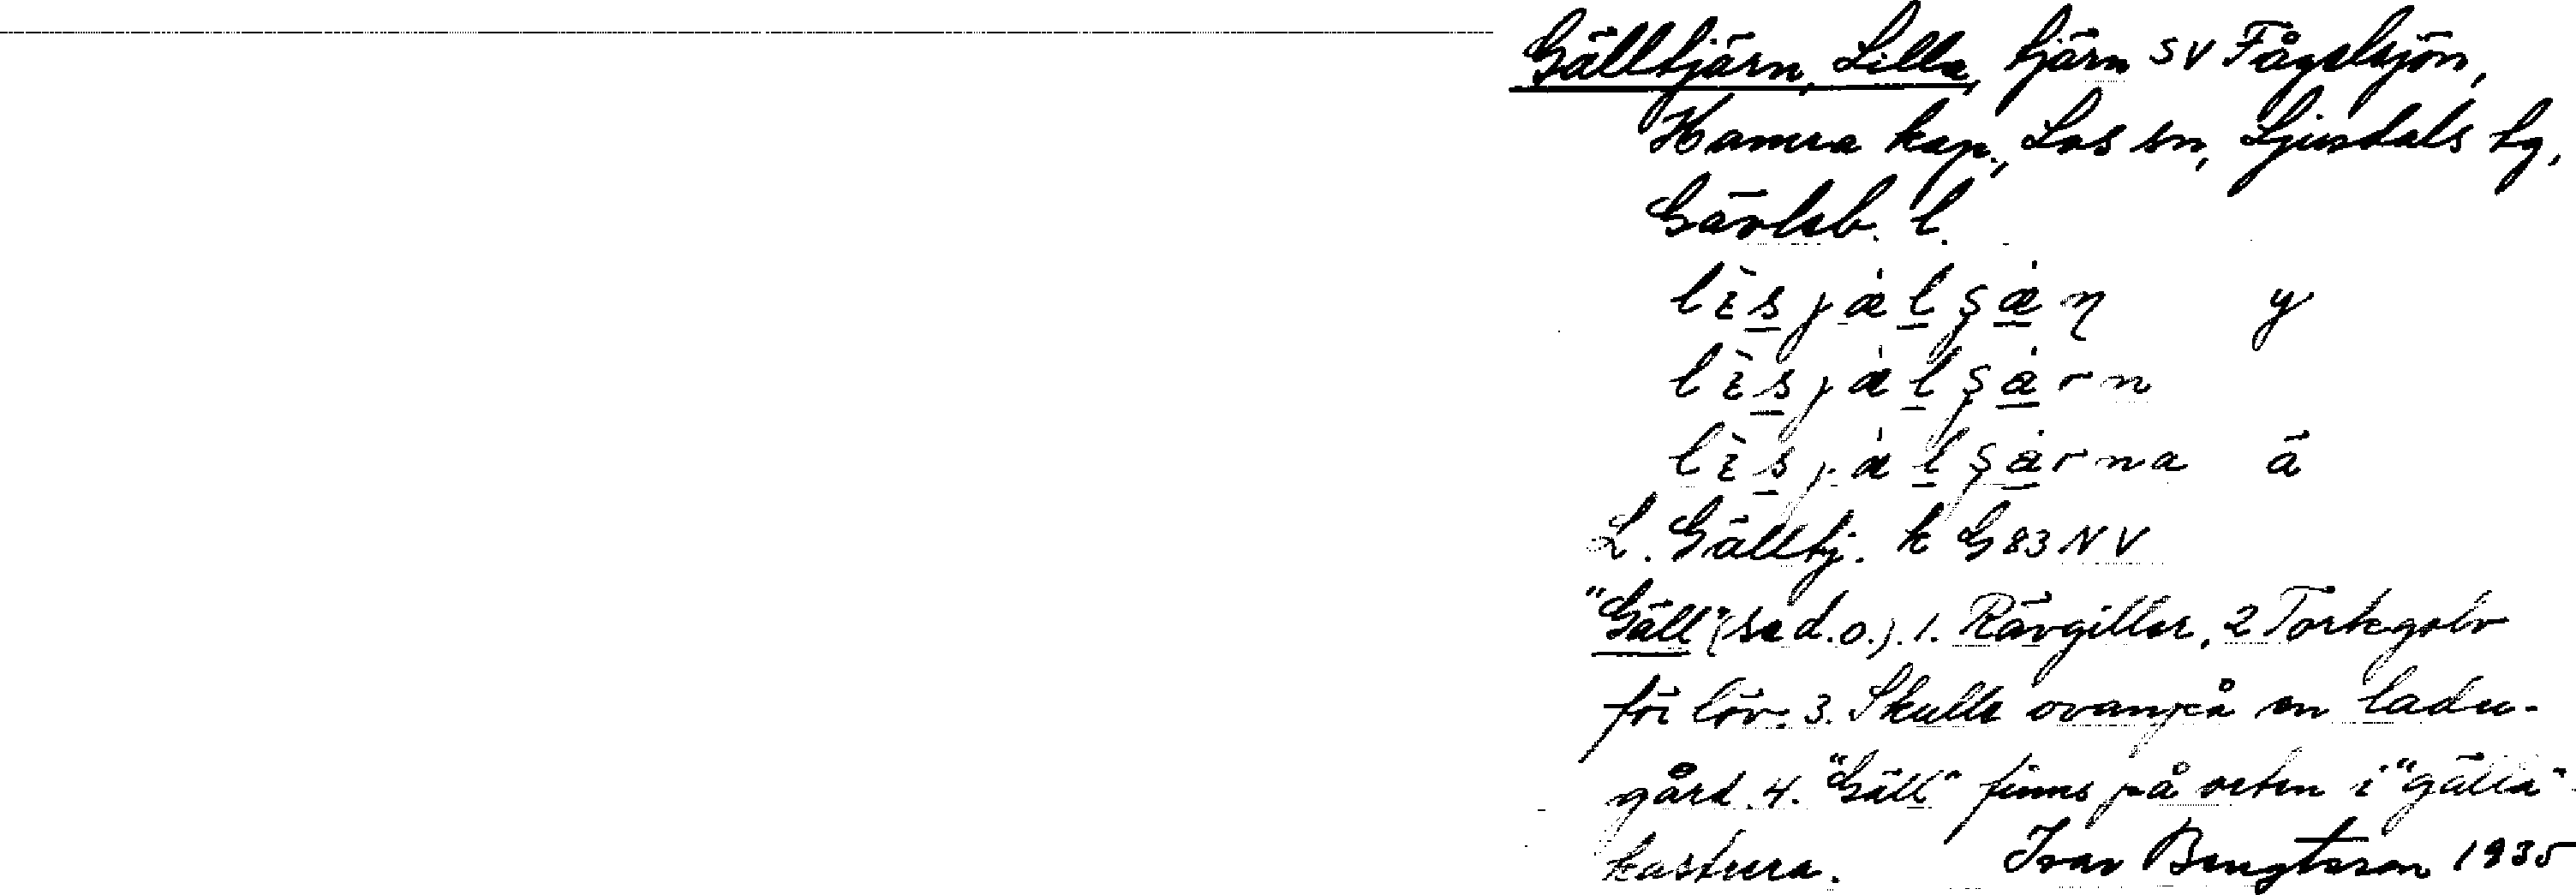 Gälltjärn, Lilla, tjärn SV Fågelsjön,
Hamra kap., Los sn, Ljusdals tg,
Gävleb. l.
y
ä
L. Gälltj. k G 83 NV
"Gäll" (se d.o.). 1. Rävgiller. 2 Torkgolv
för löv. 3. Skulle ovanpå en ladu-
gård. 4. "Gäll" finns på orten i "gälla"
kastrera. Ivar Bengtsson 1935